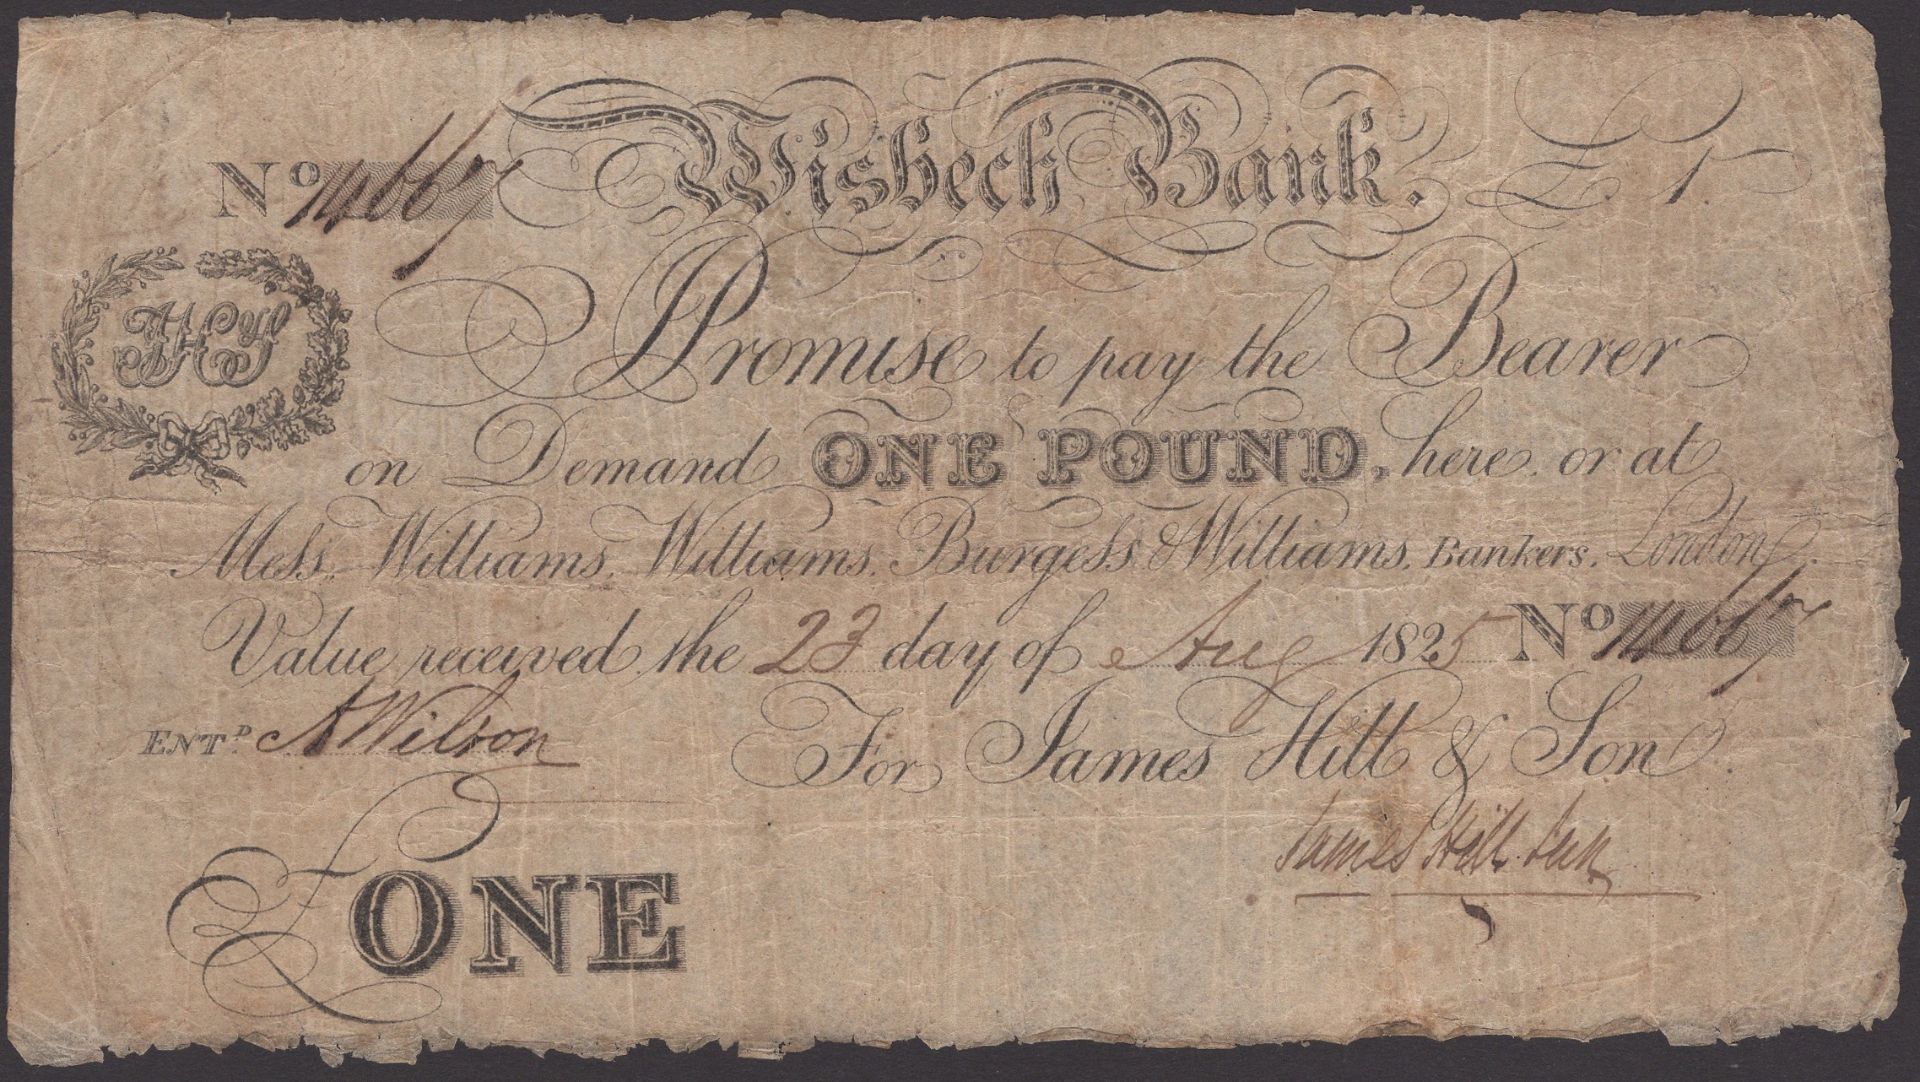 No 14667 Wisbech Bank. £ 1.
JH&S
I Promise to pay the Bearer
on Demand ONE POUND, here or at
Mess.rs Williams, Williams, Burgess & Williams, Bankers, London,
Value received the 23 day of Aug 1825 No 14667
ENTD. A Wilson For James Hill & Son.
James Hill Jun
£ONE